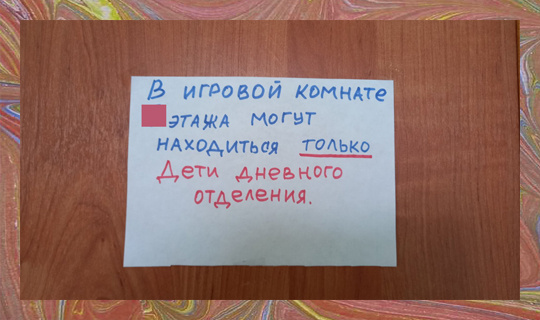 В ИГРОВОЙ КОМНАТЕ
ЭТАЖА МОГУТ
НАХОДИТЬСЯ ТОЛЬКО
Дети дневного
отделения.